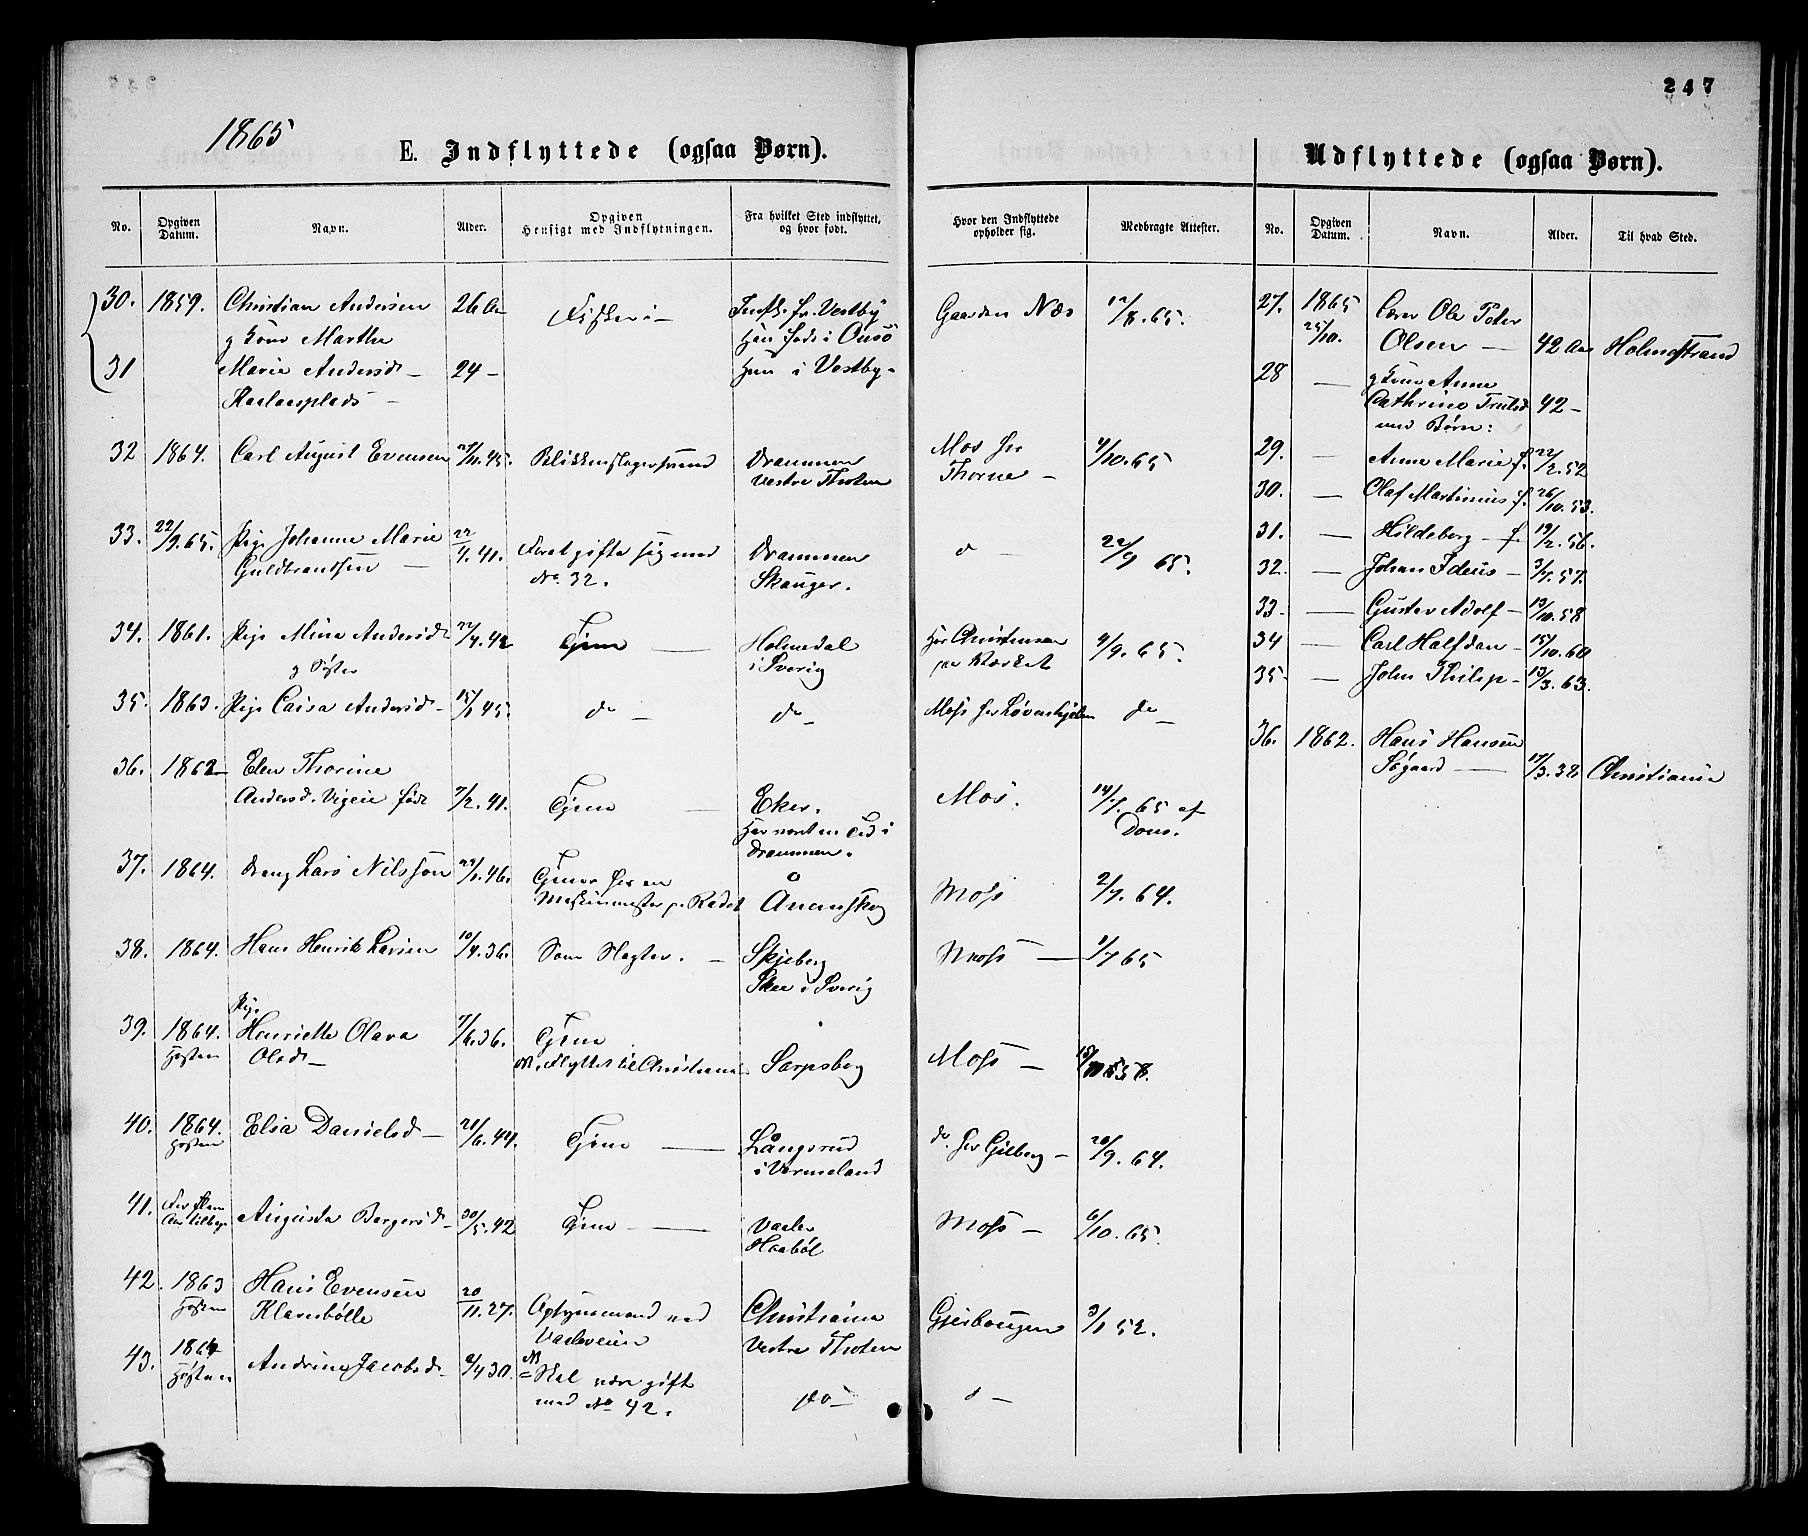 247
1865
E. Indflyttede (ogsaa Børn).
No.
Opgiven Datum.
Navn.
Alder.
Opgiven Hensigt med Indflytningen.
Fra hvilket Sted indflyttet, og hvor født.
Hvor den Indflyttede opholder sig.
Medbragte Attester.
30. 1859. Christian Andersen 26 Aar Fiskeri Indfl. fr. Vestby Gaarden Næs 12/8. 65.
g Kone Marthe Han født i Onsø
31 Marie Andersd. 24 - Hun i Vestby
32 1864. Carl August Evensen 27/11.45. Blikkenslagersvend Drammen Mos hos 4/10.65
Vestre Thoten Thorne
33. 22/9.65. Pige Johanne Marie 22/4.41. gifte sig med Drammen d 22/9 65.
Guldbrandsen No. 32. Skauger.
34. 1861. Pige Mina Andersd. 22/4.42 Tjene Holmedal Hos Christensen 9/9.65.
g Søster i Sverig paa Værket
35. 1863. Pige Caisa Andersd. 15/1 45. do do Moss hos do
36. 1862 Elen Thorine
Andersd. Vigeie født 7/2.41. Tjene Eker. Mos. 14/7. 65 af
Har været en Tid i Dons.
Drammen.
37. 1864. Dreng Lars Nilsson 29/1.46. Tjener hos en Ånanskog Moss 2/7. 64.
Maskinmester
38. 1864. Hans Henrik Larsen 10/4.36. Som Slagter. Skjeberg Moss 1/7 65
Skee i Sverig
39. 1864. Pige Henriette Olava 7/6.36. Tjene Sarpsborg Moss
Høsten Olsd. NB. Flyttet til Christiania
40. 1864. Elsa Danielsd. 21/6.44. Tjene Långserud do. hos Gilberg 20/9. 64.
Høsten i Vermeland
41. Augusta Bergersd. 30/5.42 Tjene Vaaler Moss 6/10.65.
Haabøl
42. 1863 Hans Evensen 20/11.27. Opsynsmand ved Christiania 3/1 52.
Høsten Vaaleveien Vestre Thoten
43. 1864 Andrine Jacobsd. 9/4 30. NB Skal være gift do d
Høsten med No 42.
Udflyttede (ogsaa Børn).
No.
Opgiven Datum.
Navn.
Alder.
Til hvad Sted.
27. 1865 Ole Peter
25/10. Olsen 42 Aar Holmestrand
28 g Kone Anne
Cathrine Trulsd. 42
med Børn:
29. Anne Marie f. 22/2.52
30. Olaf Martinius f. 26/10.53.
31. Hildeborg f 19/2.56.
32. Johan Ideus 3/7.57.
33. Gustav Adolf 13/10.58
34 Carl Halfdan 15/10.60
35 John Philip 13/3.63.
36. 1862. Hans Hansen
Søgaard 17/3.38 Christiania